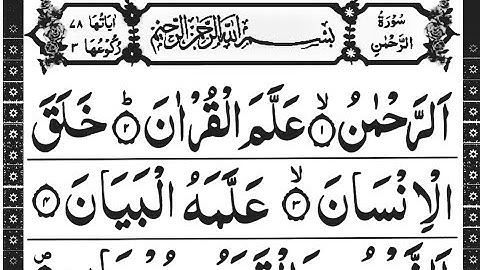 سُوْرَةُ الرَّحْمٰن
بِسْمِ اللهِ الرَّحْمٰنِ الرَّحِيْمِ
اٰيَاتُهَا ٧٨
رُكُوْعُهَا ٣
اَلرَّحْمٰنُ ۙ﴿١﴾ عَلَّمَ الْقُرْاٰنَ ؕ﴿٢﴾ خَلَقَ
الْاِنْسَانَ ۙ﴿٣﴾ عَلَّمَهُ الْبَيَانَ ﴿٤﴾